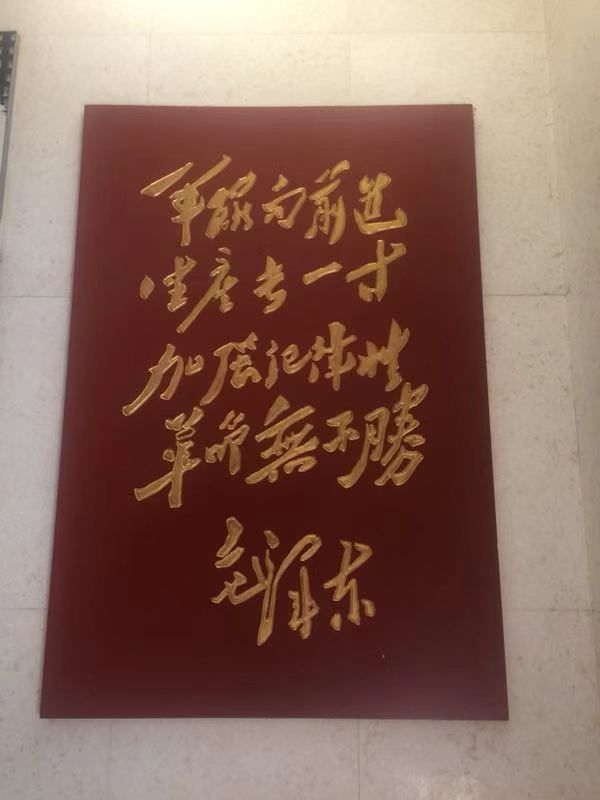 军队向前进
生产长一寸
加强纪律性
革命無不勝
毛泽东